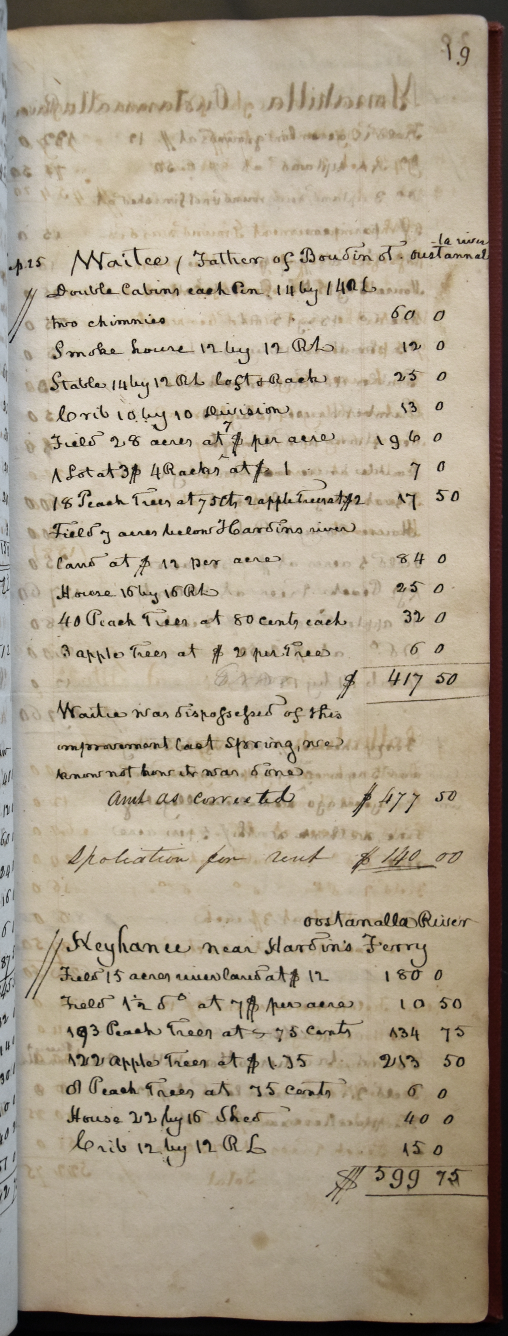 19
Sep. 25 Waitee / Father of Boudinot. oustannalla river
Double Cabins each Pen 14 by 14 RL
two chimnies 60 0
Smoke house 12 by 12 RL 12 0
Stable 14 by 12 RL loft & Rack 25 0
Crib 10 by 10 Division 13 0
Field 28 acres at 7 $ per acre 196 0
1 Lot at 3$ 4 Racks at $ 1 7 0
18 Peach Trees at 75 cts 2 apple trees at $2 17 50
Field 7 acres below Hardins river
land at $ 12 per acre 84 0
House 16 by 16 RL 25 0
40 Peach Trees at 80 cents each 32 0
3 apple Trees at $ 2 per Tree 6 0
$ 417 50
Waitie was dispossessed of this
improvement last Spring, we
know not how it was done
amt as corrected $ 477 50
Spoliation for rent $ 140 00
oostanalla River
Keyhanee near Hardin's Ferry
Field 15 acres river land at $ 12 180 0
Field 1½ do at 7$ per acre 10 50
193 Peach Trees at 75 cents 134 75
122 apple Trees at $ 1.75 213 50
8 Peach Trees at 75 cents 6 0
House 22 by 16 Shed 40 0
Crib 12 by 12 RL 15 0
$ 599 75